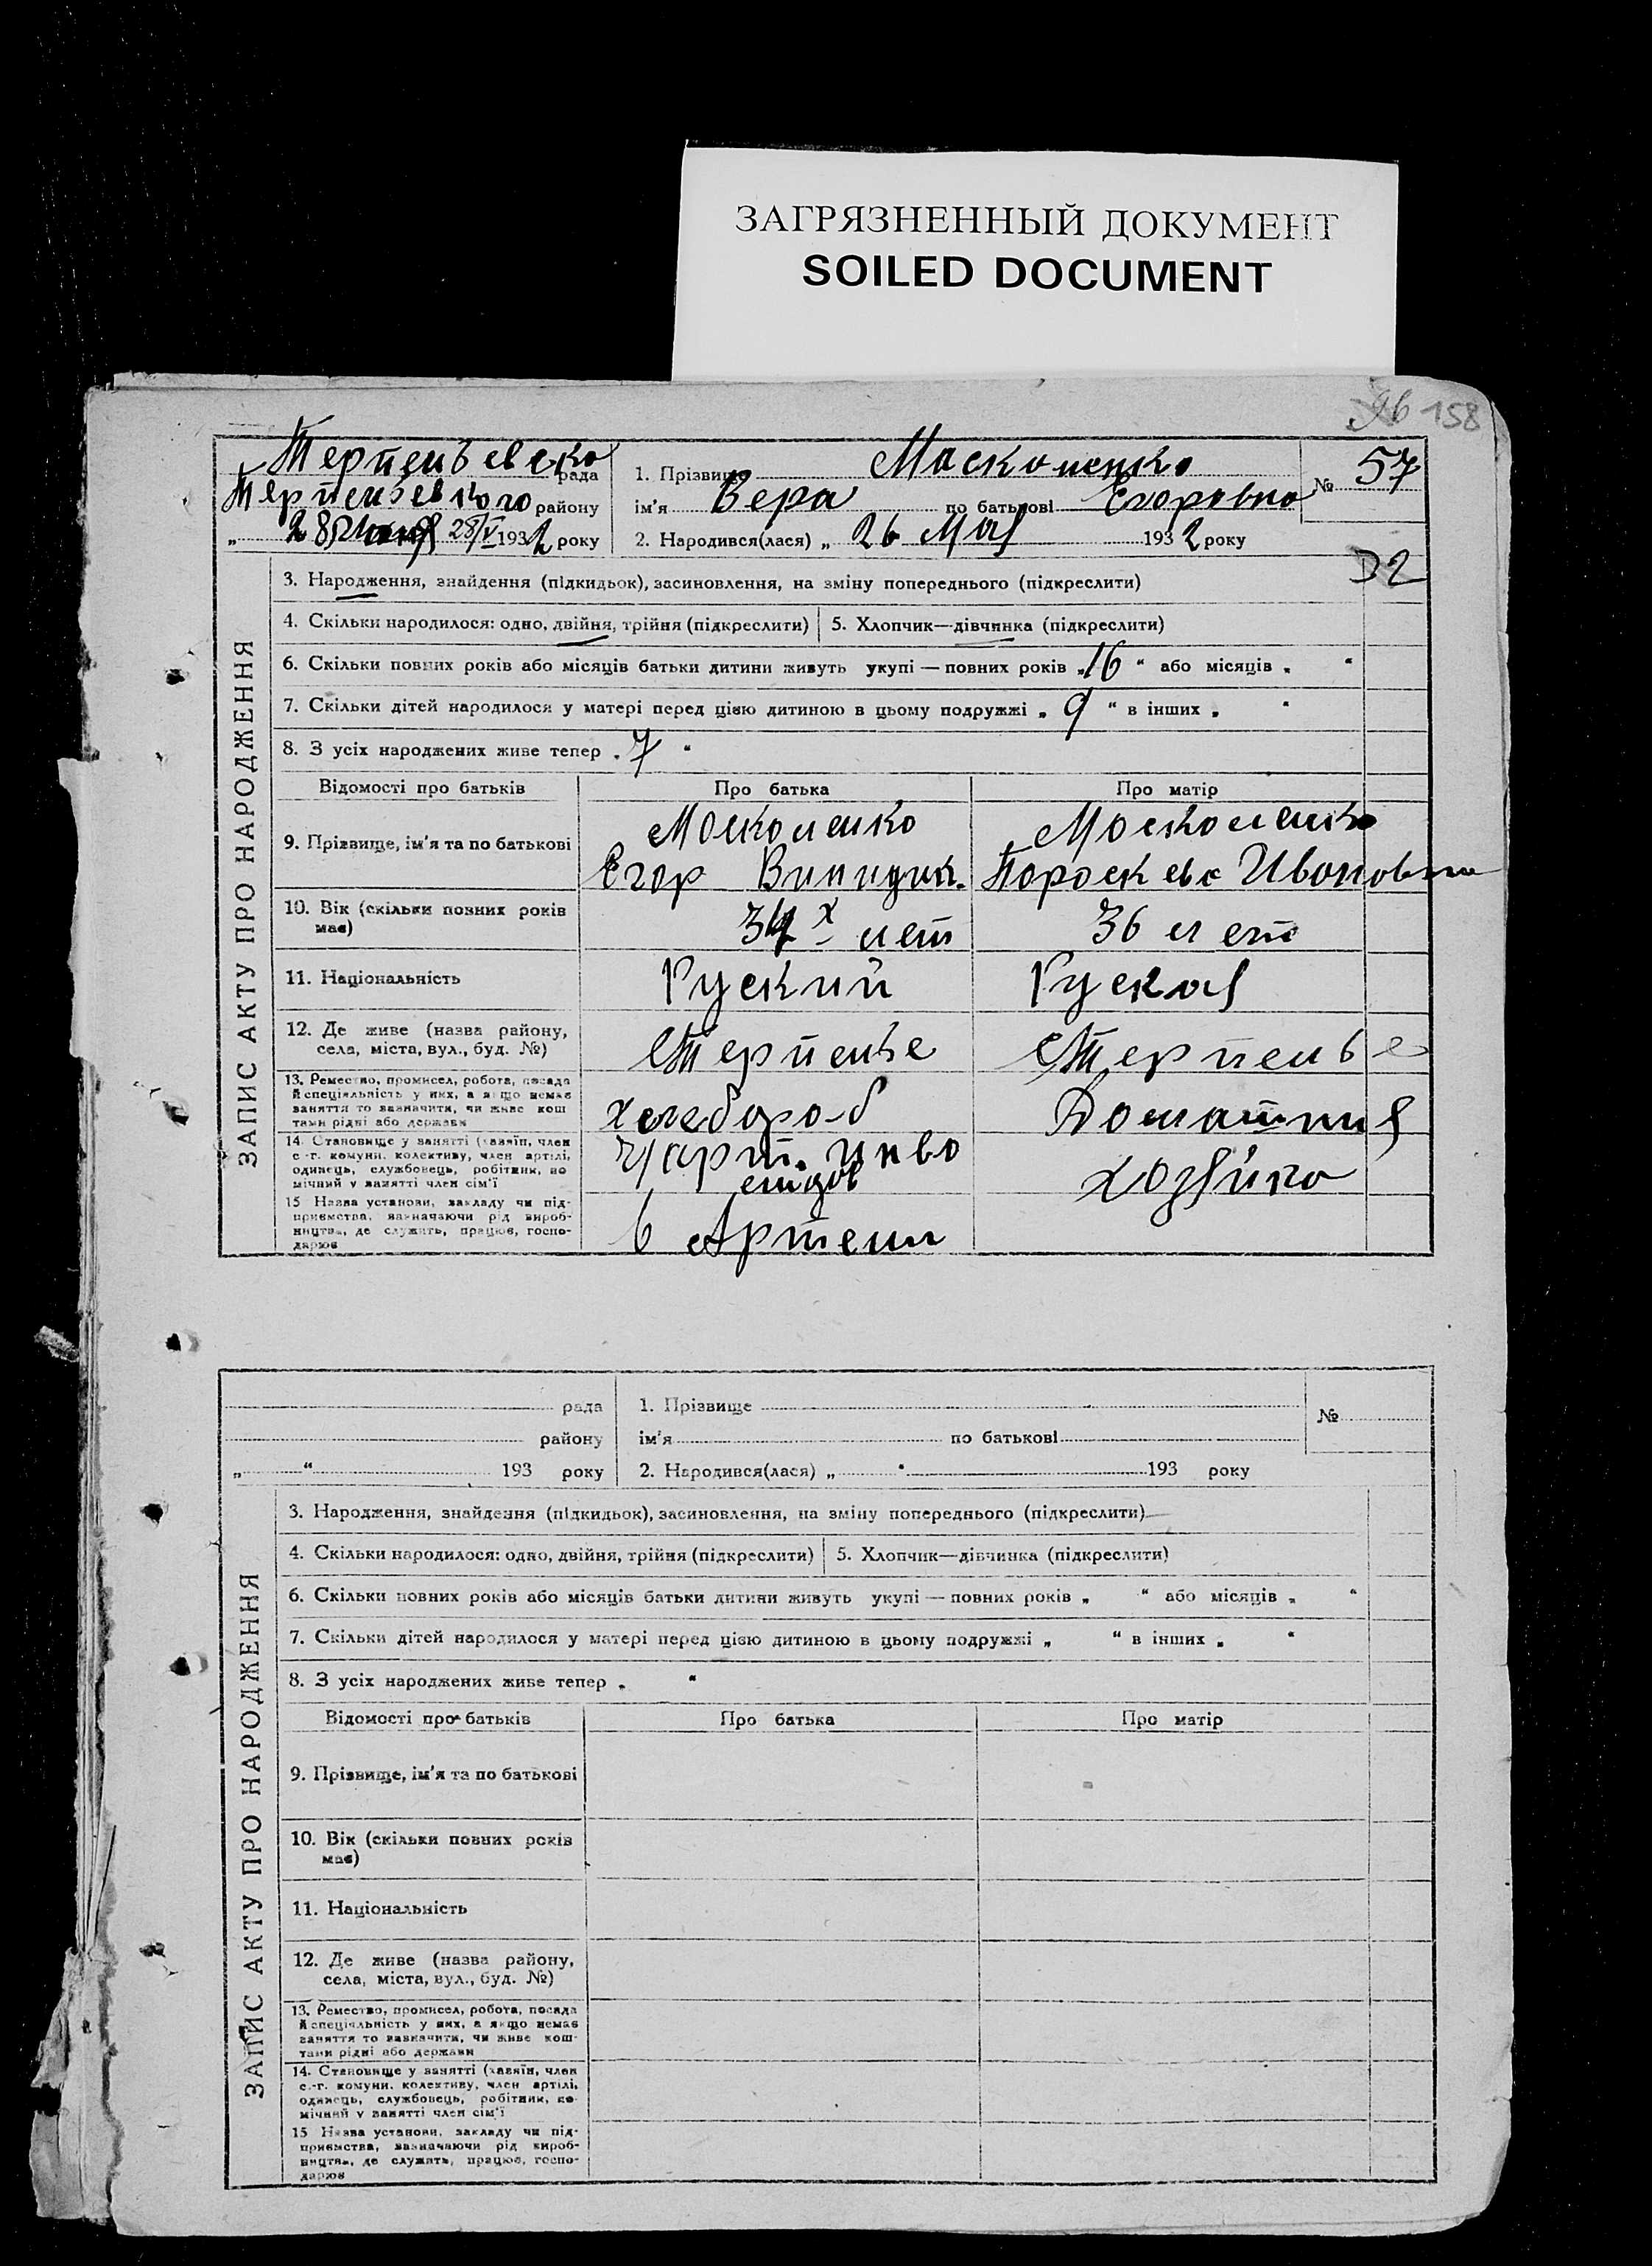 ЗАГРЯЗНЕННЫЙ ДОКУМЕНТ
SOILED DOCUMENT
158
Терпеньевско рада
Терпеньевского району
„ 28 28/V 1932 року
1. Прізвище Москоленко
ім'я Вера по батькові Егоровна
№ 57
2. Народився(лася) „ 26 Мая 1932 року
ЗАПИС АКТУ ПРО НАРОДЖЕННЯ
3. Народження, знайдення (підкидьок), засиновлення, на зміну попереднього (підкреслити)
4. Скільки народилося: одно, двійня, трійня (підкреслити) 5. Хлопчик—дівчинка (підкреслити)
6. Скільки повних років або місяців батьки дитини живуть укупі — повних років „16“ або місяців „ “
7. Скільки дітей народилося у матері перед цією дитиною в цьому подружжі „ 9 “ в інших „ “
8. З усіх народжених живе тепер „ 7 “
Відомості про батьків Про батька Про матір
9. Прізвище, ім'я та по батькові
Москоленко
Егор
Москоленко
Пороскева Ивоновна
10. Вік (скільки повних років має)
лет
36 лет
11. Національність
Руский
Руская
12. Де живе (назва району, села, міста, вул., буд. №)
Терпенье
Терпенье
13. Ремество, промисел, робота, посада й спеціяльність у них, а якщо немає заняття то зазначити, чи живе коштами рідні або держави
хлебороб
Домашния
14. Становище у занятті (хазяїн, член с.-г. комуни, колективу, член артілі, одинець, службовець, робітник, помічний у занятті член сім'ї
ч/арт.
хозяйка
15 Назва установи, закладу чи підприємства, зазначаючи рід виробництва, де служить, працює, господарює
в Артели
рада
району
„ “ 193 року
1. Прізвище
ім'я по батькові
№
2. Народився(лася) „ “ 193 року
ЗАПИС АКТУ ПРО НАРОДЖЕННЯ
3. Народження, знайдення (підкидьок), засиновлення, на зміну попереднього (підкреслити)
4. Скільки народилося: одно, двійня, трійня (підкреслити) 5. Хлопчик—дівчинка (підкреслити)
6. Скільки повних років або місяців батьки дитини живуть укупі — повних років „ “ або місяців „ “
7. Скільки дітей народилося у матері перед цією дитиною в цьому подружжі „ “ в інших „ “
8. З усіх народжених живе тепер „ “
Відомості про батьків Про батька Про матір
9. Прізвище, ім'я та по батькові
10. Вік (скільки повних років
має)
11. Національність
12. Де живе (назва району,
села, міста, вул., буд. №)
13. Ремество, промисел, робота, посада
й спеціяльність у них, а якщо немає
заняття то зазначити, чи живе кош-
тами рідні або держави
14. Становище у занятті (хазяїн, член
с.-г. комуни, колективу, член артілі,
одинець, службовець, робітник, по-
мічний у занятті член сім'ї
15 Назва установи, закладу чи під-
приємства, зазначаючи рід вироб-
ництва, де служить, працює, госпо-
дарює